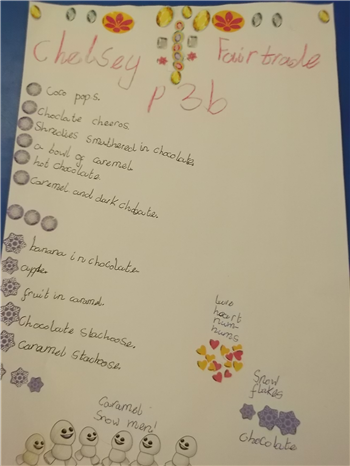 Chelsey Fairtrade
P3b
Coco pops.
Choclate cheeros.
Shreddies smothered in chocolate
a bowl of caramel.
hot chocolate.
Caramel and dark chobate.
banana in chocolate.
apple.
fruit in caramel.
Chocolate stachoose.
Caramel stachoose.
love
heart
num-
nums
Snow
flakes
chocolate
Caramel
Snow men!